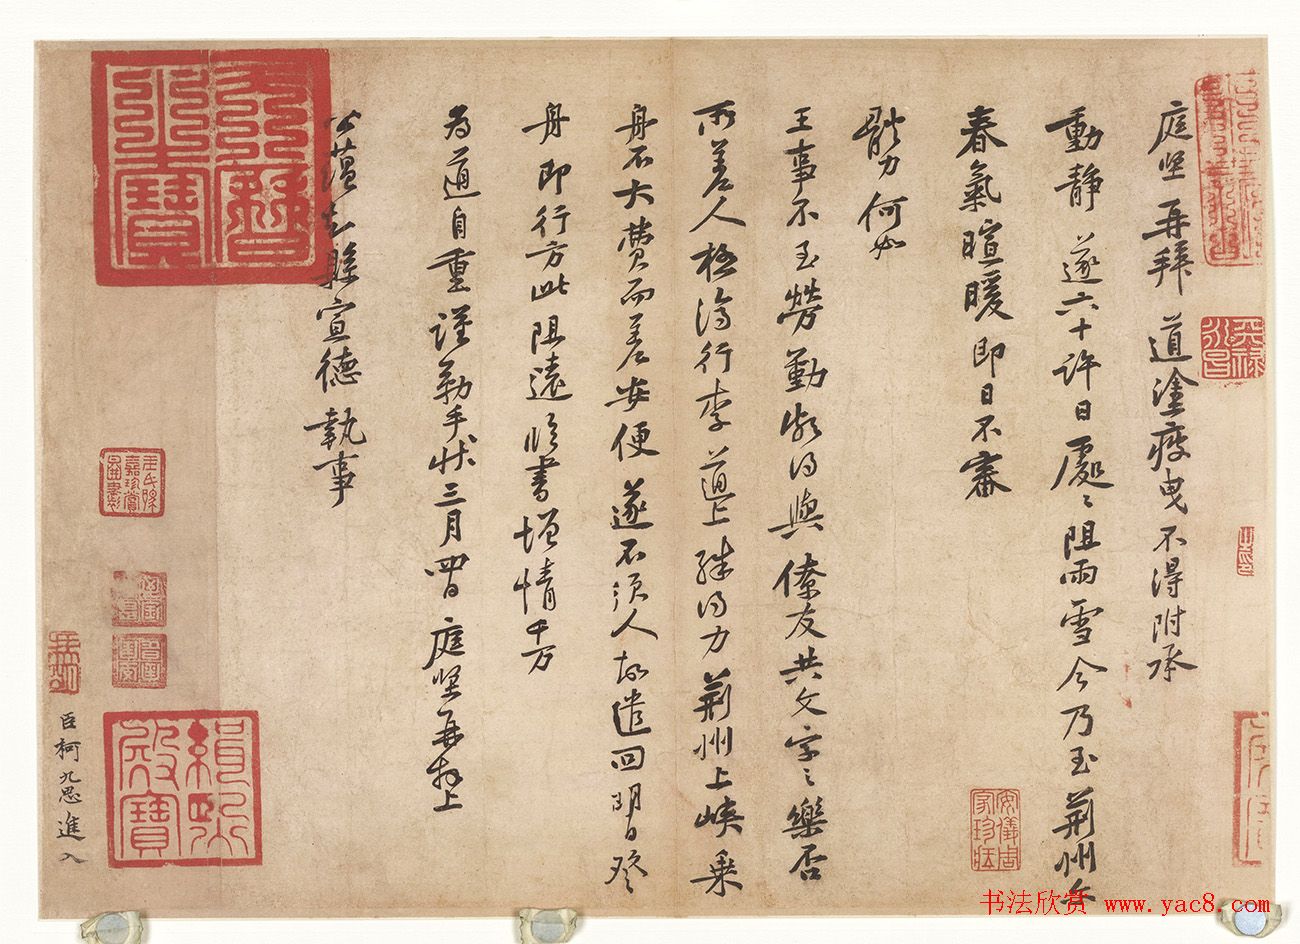 庭堅再拜 道塗疲曳不得附承
動靜 遂六十許日處〻阻雨雪今乃至荊州爾
春氣暄暖即日不審
體力何如
王事不至勞勤頗得與僚友共文字之樂否
所差人極濟行李道上殊得力荊州上峽乘
舟不大費而差安便遂不須人故遣回明日發
舟即行方此阻遠臨書增情千万
為道自重謹勒手狀三月四日庭堅再拜上
公蘊知縣宣德執事
臣柯九思進入
天曆之寶
緝熙殿寶
安儀周家珍藏
书法欣赏 www.yac8.com